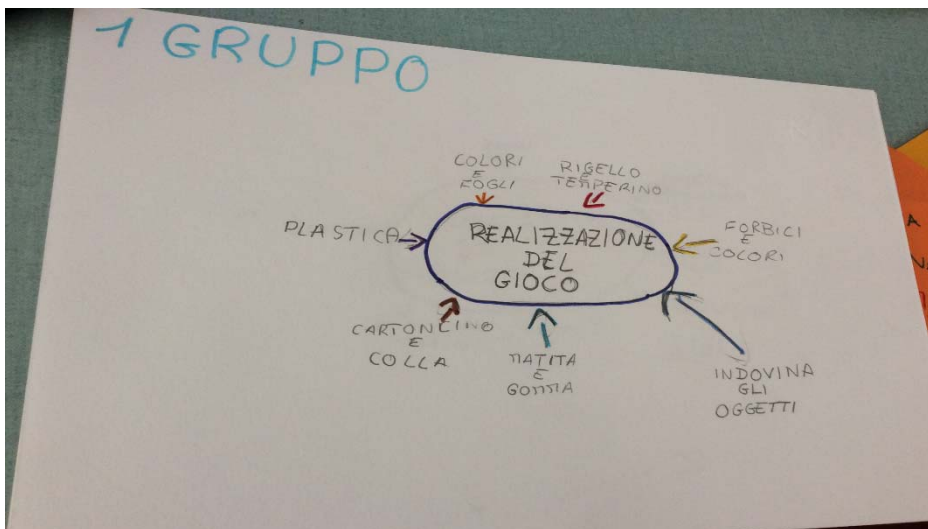 1 GRUPPO
COLORI
E
FOGLI
RIGELLO
E
TEMPERINO
PLASTICA
REALIZZAZIONE
DEL
GIOCO
FORBICI
E
COLORI
CARTONCINO
E
COLLA
MATITA
E
GOMMA
INDOVINA
GLI
OGGETTI
A